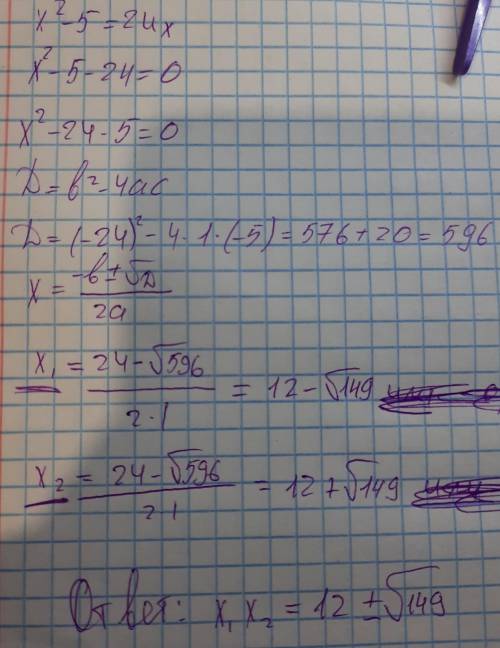 x²-5=24x
x²-5-24=0
x²-24-5=0
D=b²-4ac
D=(-24)²-4·1·(-5)=576+20=596
x = (-b±√D)/2a
x₁ = (24-√596)/(2·1) = 12-√149
x₂ = (24-√596)/(2·1) = 12+√149
Ответ: x₁ x₂ = 12 ±√149